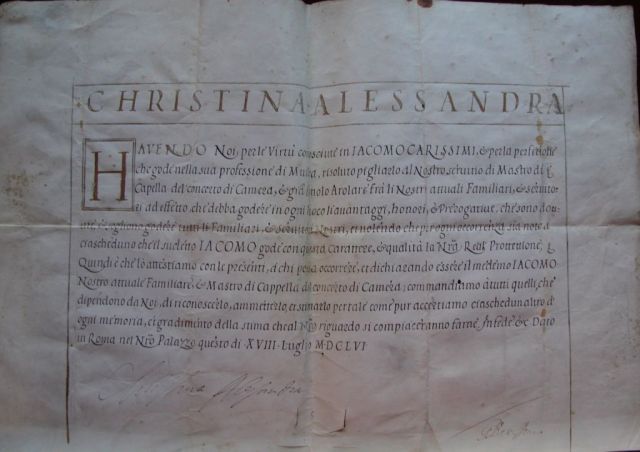 CHRISTINA ALESSANDRA
HAVENDO Noi, per le Virtù conosciute in IACOMO CARISSIMI, & per la perfettione
che gode nella sua professione di Musica, risoluto pigliarlo al Nostro seruitio di Mastro di
Capella del concerto di Camera, & Arolare frà li Nostri attuali Familiari, & seruito-
ri ad effetto, che debba godere in ogni loco li auantaggi, honori, & Prerogatiue, che sono do-
godere tutti li Familiari, & Nostri, et uolendo che p. ogni occorrenza sia noto à
ciascheduno che'l sudetto IACOMO gode con questa Carattere, & qualità la Nrã Reale Prottetione,
Quindi è che lo attestiamo con le presenti, à chi possa occorrere, et dichiarando essere il medemo IACOMO
Nostro attuale Familiare, & Mastro di Cappella del concerto di Camera; commandiamo à tutti quelli, che
dipendono da Noi, di riconoscerlo, ammetterlo, et stimarlo per tale come pur accertiamo ciaschedun altro d'
ogni memoria, et gradimento della stima che al Nrõ riguardo si compiaceranno farne, Infede &c Dato
in Roma nel Nrõ Palazzo questo di XVIII Luglio MDCLVI
Christina Alessandra